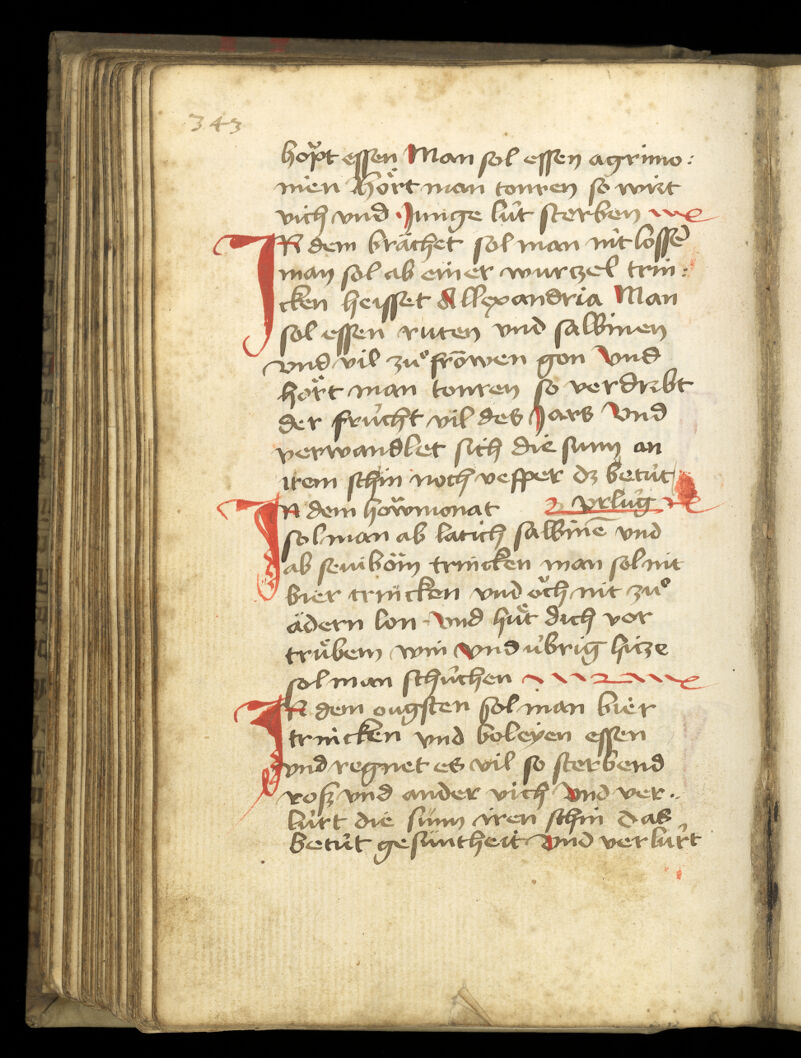 343
hopt essen Man sol essen agrimo:
nien Hört man tonren so wirt
vich vnd Junge lüt sterben
IN dem brächet sol man nit lossē
man sol ab einer wurczel trin:
cken heisset Allexandria Man
sol essen ruten vnd salbinen
vnd vil zuͦ frowen gon Vnd
hört man tonren so verdirbt
der frücht vil des Jars Vnd
verwandlet sich die sunn an
irem schin noch vesper dz betüt
IN dem höwmonat vrlüg
sol man ab latich salbinē vnd
ab seuiböm trincken man sol nit
bier trincken vnd öch nit zuͦ
ädern lon Vnd hüt dich vor
trübem win Vnd übrig hicze
sol man schüchen
IN dem ougsten sol man bier
trincken vnd boleyen essen
vnd regnet es vil so sterbend
roß vnd ander vich Vnd ver:
lürt die sunn iren schin das
betüt gesuntheit Vnd verlürt